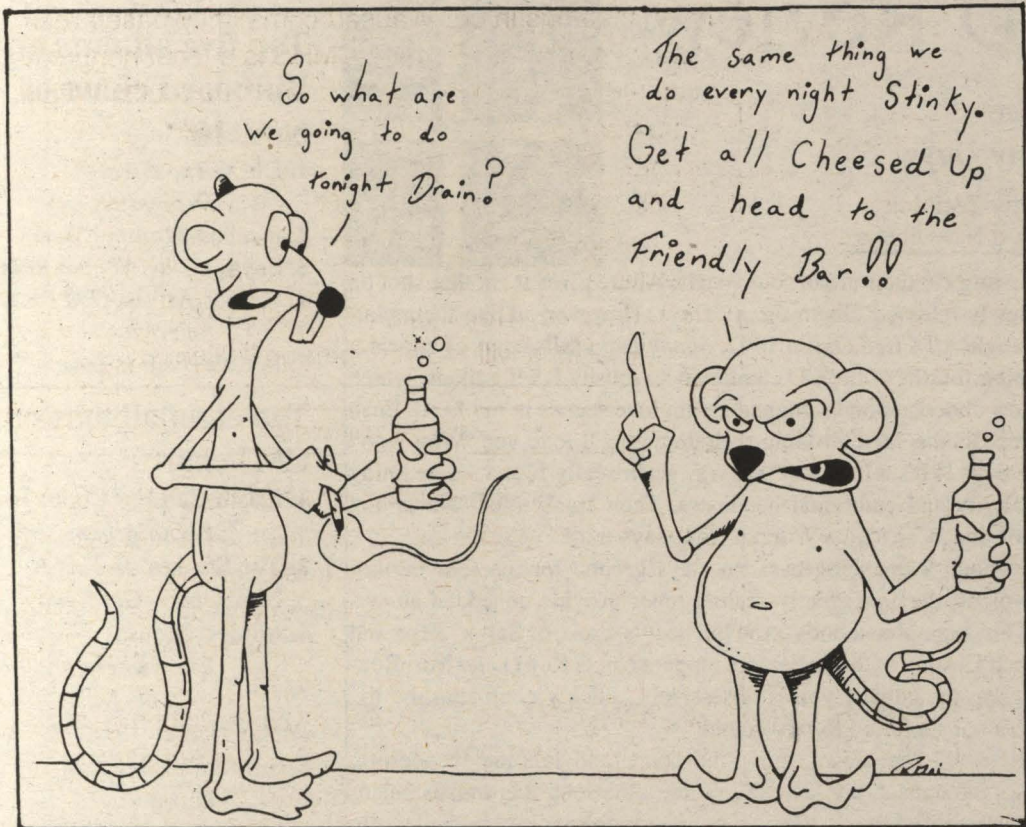 So what are
we going to do
tonight Drain?
The same thing we
do every night Stinky.
Get all Cheesed Up
and head to the
Friendly Bar!!